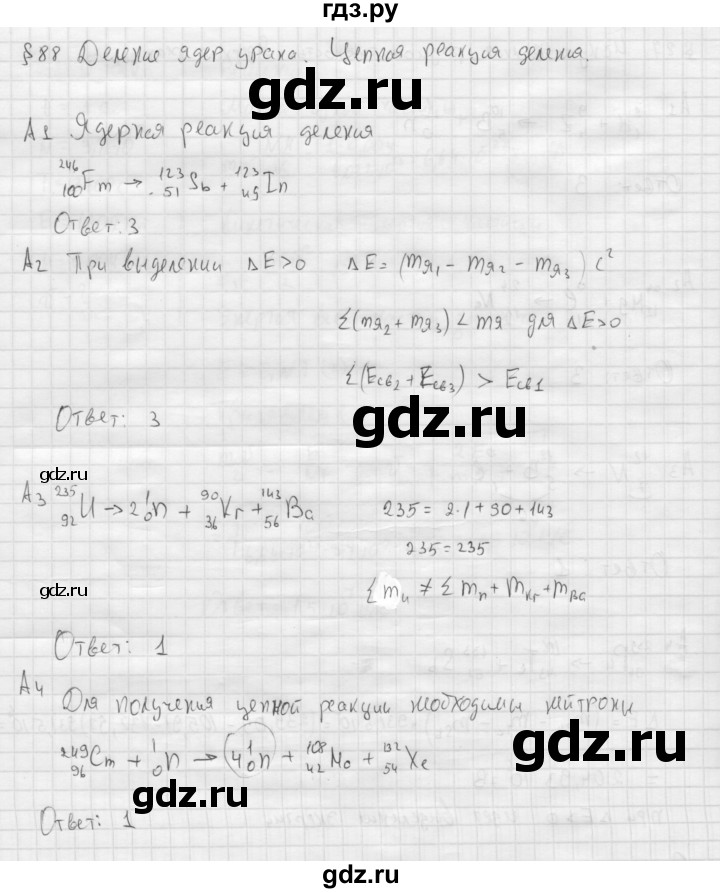 гдз.ру
§88 Деление ядер урана. Цепная реакция деления.
gdz.ru
А1 Ядерная реакция деления
²⁴⁶₁₀₀Fm → ¹²³₅₁Sb + ¹²³₄₉In
Ответ: 3
А2 При выделении ΔE>0 ΔE = (mя₁ − mя₂ − mя₃) c²
Σ(mя₂ + mя₃) < mя для ΔE>0
Σ(Eсв₂ + Eсв₃) > Eсв1
gdz.ru
Ответ: 3
gdz.ru
А3 ²³⁵₉₂U → 2¹₀n + ⁹⁰₃₆Kr + ¹⁴³₅₆Ba 235 = 2·1 + 90 + 143
235 = 235
gdz.ru
Σmu ≠ Σmn + mKr + mBa
Ответ: 1
gdz.ru
А4 Для получения цепной реакции необходимы нейтроны
²⁴⁹₉₆Cm + ¹₀n → 4¹₀n + ¹⁰⁸₄₂Mo + ¹³²₅₄Xe
gdz.ru
Ответ: 1
gdz.ru
gdz.ru